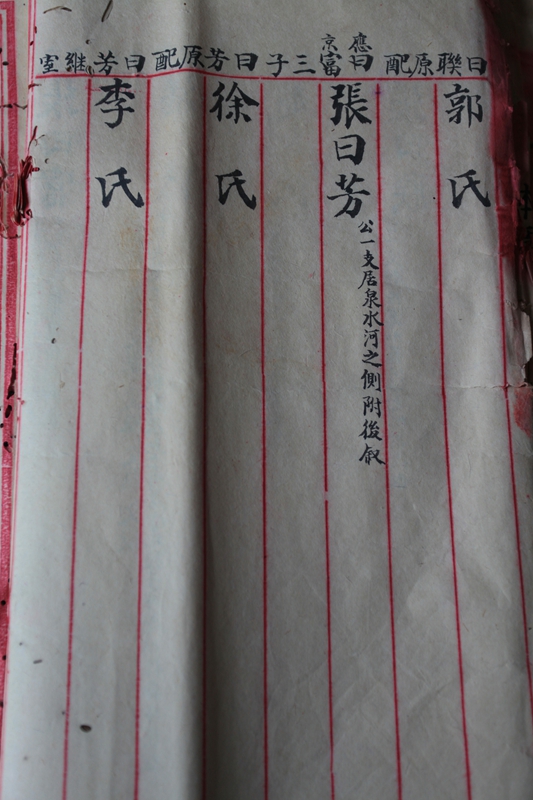 曰聯原配
郭氏
應京
曰富三子
張曰芳
公一支居泉水河之側附後叙
曰芳原配
徐氏
曰芳继室
李氏